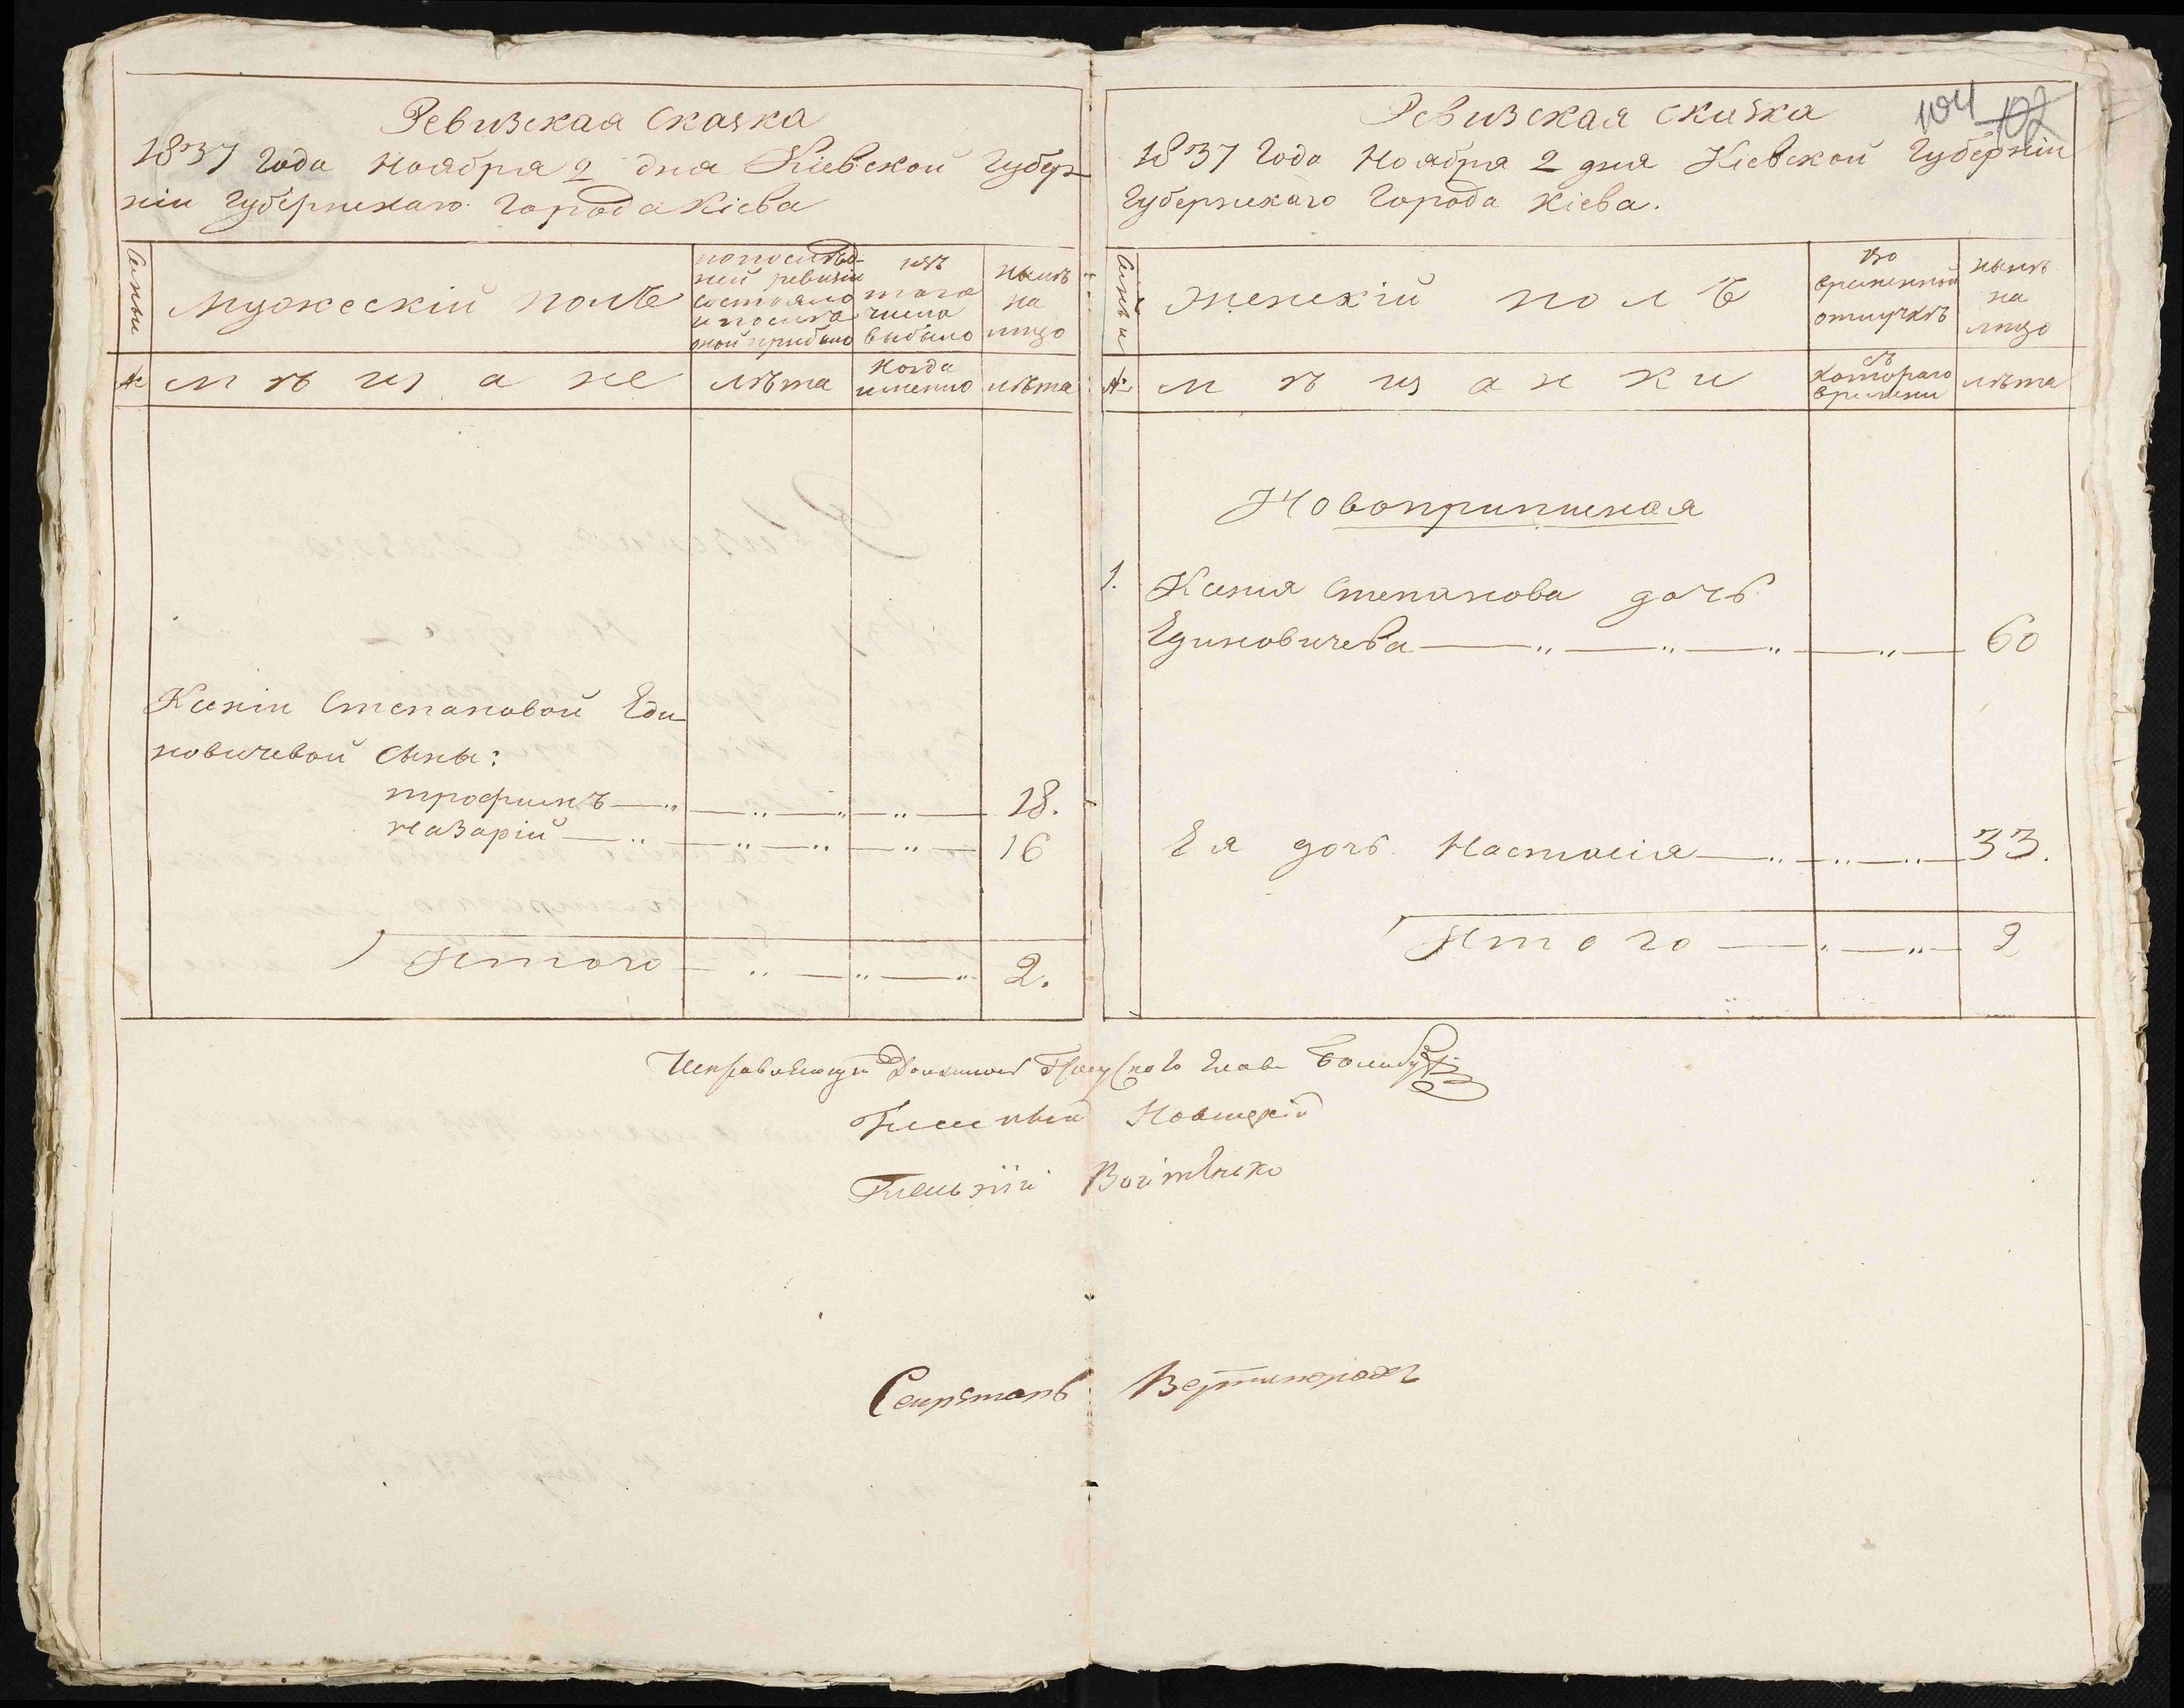 Ревизская Сказка
1837 года Ноября 2 дня Кіевской Губер-
ніи Губернскаго Города Кіева
Семьи
Мужескій полъ
по послѣд-
ней ревизіи
состояло
и после
оной прибыло
изъ
того
числа
выбыло
нынѣ
на
лицо
№
мѣщане
лѣта
когда
именно
лѣта
Ксеніи Степановой Еди-
новичевой сыны:
Трофимъ 18.
Назарій 16
Итого 2.
Ревизская сказка
104 102
1837 Года Ноября 2 дня Кіевской Губерніи
Губернскаго Города Кіева.
Семьи
Женскій полъ
во
временной
отлучкѣ
нынѣ
на
лицо
№
мѣщанки
съ
котораго
времени
лѣта
Новоприписная
1. Ксенія Степанова дочь
Единовичева 60
Ея дочь Настасія 33.
Итого 2
Исправляющій Должность Главы
Гласный Новицкій
Гласный Войтенко
Секретарь